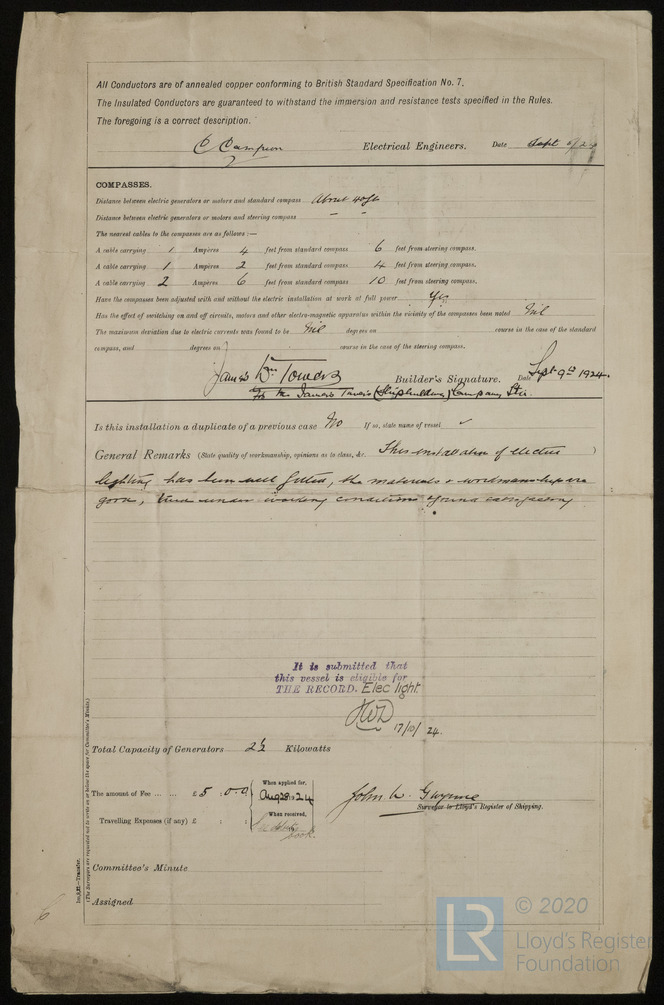 All Conductors are of annealed copper conforming to British Standard Specification No. 7.
The Insulated Conductors are guaranteed to withstand the immersion and resistance tests specified in the Rules.
The foregoing is a correct description.
C Campion Electrical Engineers. Date Sept
COMPASSES.
Distance between electric generators or motors and standard compass About 40ft
Distance between electric generators or motors and steering compass - -
The nearest cables to the compasses are as follows :—
A cable carrying 1 Ampères 4 feet from standard compass 6 feet from steering compass.
A cable carrying 1 Ampères 2 feet from standard compass 4 feet from steering compass.
A cable carrying 2 Ampères 6 feet from standard compass 10 feet from steering compass.
Have the compasses been adjusted with and without the electric installation at work at full power Yes
Has the effect of switching on and off circuits, motors and other electro-magnetic apparatus within the vicinity of the compasses been noted Nil
The maximum deviation due to electric currents was found to be Nil degrees on course in the case of the standard
compass, and degrees on course in the case of the steering compass.
James Towers Builder's Signature. Date Sept 9th 1924.
James Towers (Shipbuilding) Company
Is this installation a duplicate of a previous case No If so, state name of vessel ✓
General Remarks (State quality of workmanship, opinions as to class, &c. This installation of electric )
lighting has been well fitted, the materials & workmanship are
good, tried under working conditions & found satisfactory
It is submitted that
this vessel is eligible for
THE RECORD. Elec light.
17/10/24.
Total Capacity of Generators 2½ Kilowatts
The amount of Fee ... ... £ 5 : 0 . 0
When applied for,
Aug 28 1924
When received,
Travelling Expenses (if any) £ : :
book.
John W. Gwynne
Surveyor to Lloyd's Register of Shipping.
Committee's Minute
Assigned
(The Surveyors are requested not to write on or below the space for Committee's Minute.)
© 2020
LR
Lloyd's Register
Foundation